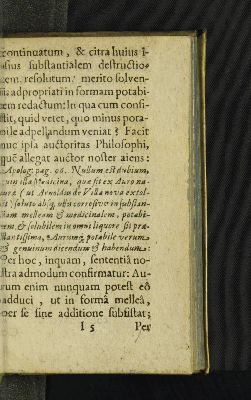 continuatum, & citra huius i-
psius substantialem destructio-
nem, resolutum, merito solven-
tia adpropriati in formam potabi-
lem redactum: In qua cum consi-
stit, quid vetet, quo minus pota-
bile adpellandum veniat? Facit
huc ipsa auctoritas Philosophi,
quē allegat auctor noster aiens:
Apolog. pag. 66. Nullum est dubium,
quin illa Medicina, quæ fit ex Auro na-
turæ (ut Arnoldus de Villa nova extol-
lit) soluto absq, ubi corrosivo in substan-
tiam melleam & medicinalem, potabi-
lem, & solubilem in omni liquore sit præ-
stantissima, Aurumq; potabile verum
& genuinum dicendum & habendum:
Per hoc, inquam, sententiā no-
stra admodum confirmatur: Au-
rum enim nunquam potest eò
adduci, ut in formā melleā,
per se sine additione subsistat;
I 5 Per